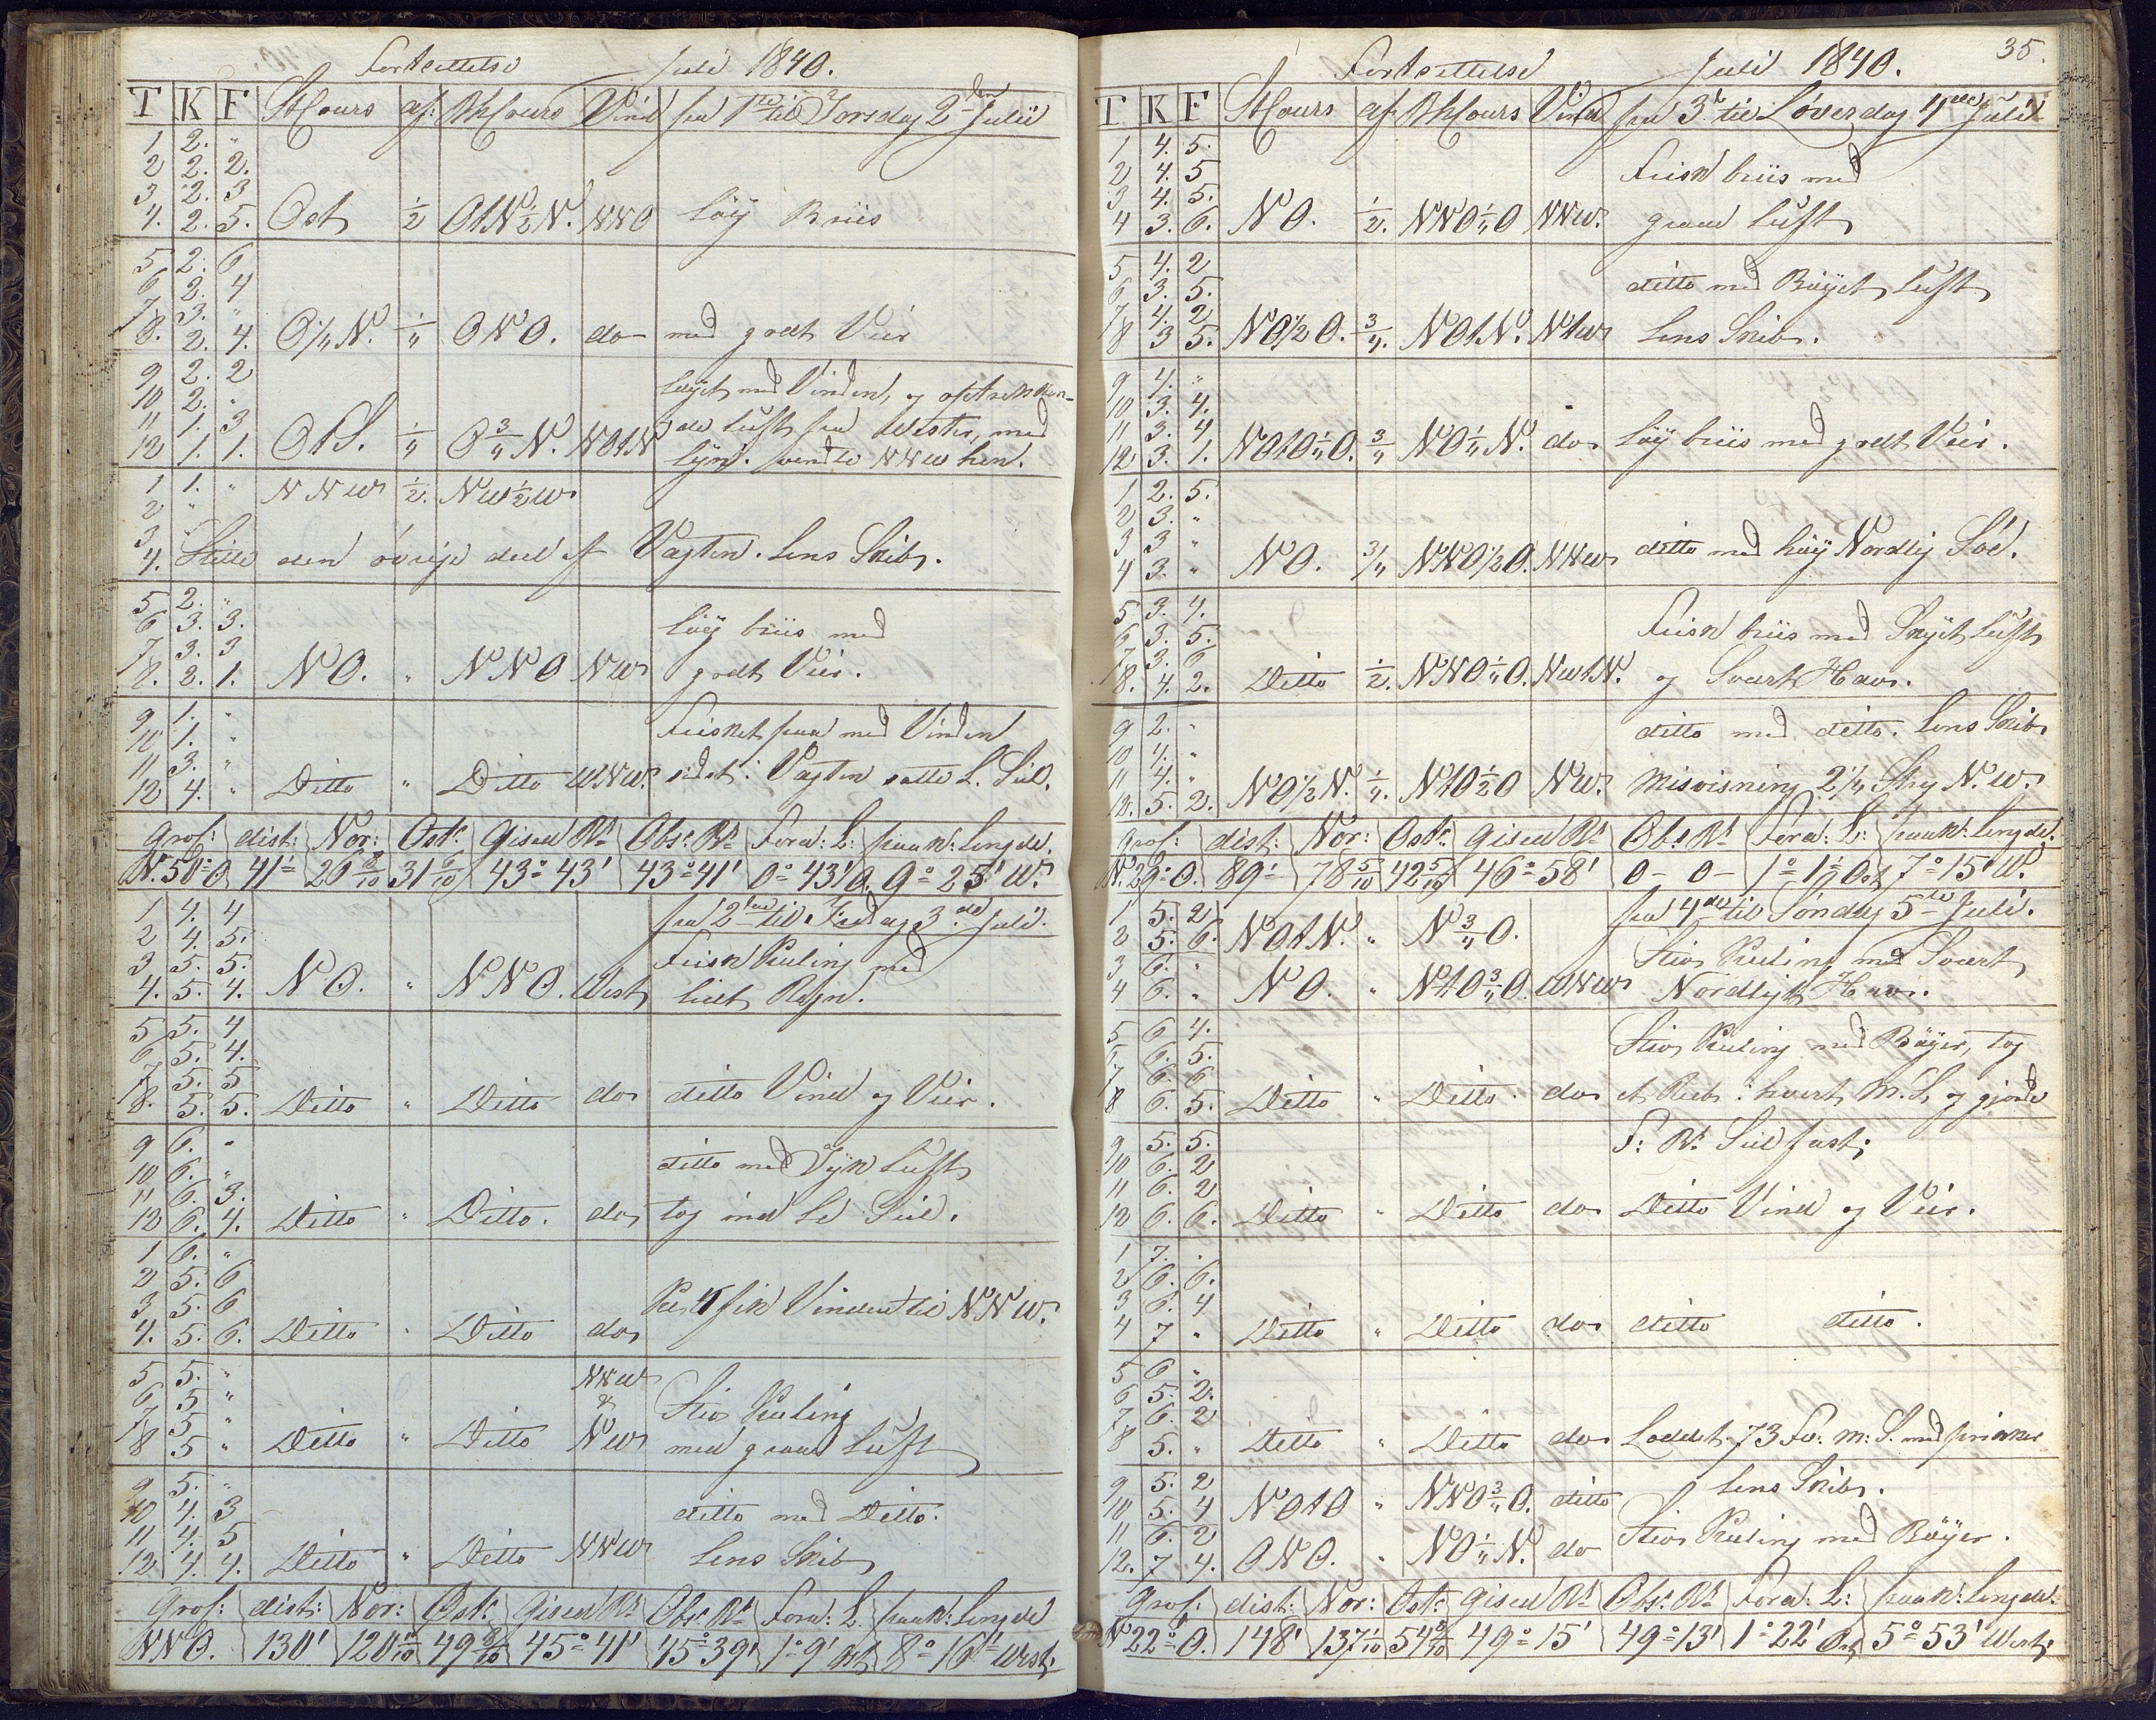 Fortsettelse Juli 1840.
T K F StCours af: BhCours Vind fra 1ste til Torsdag 2den Julii
1 2. "
2 2. 2.
3 2. 3
4. 2. 5. Ost 1/2 OtN 1/2 N. NNO Løy Briis
5 2. 6
6 2. 4
7 3. "
8. 2. 4. O 1/4 N. 1/4 ONO. do med godt Veir
9 2. 2 Løyet med Vinden, og optrekken-
10 2. "
11 1. 3 de Luft fra Vester, med
12 1. 1. OtS. 1/4 O 3/4 N. NOtN lyn. vendte NNW hen.
1 1. " NNW 1/2. NW 1/2 W
2 "
3
4. Stille den øvrige deel af Vagten. Lens Skib.
5 2. "
6 3. 3. Løy briis med
7 3. 3
8. 2. 1. NO. " NNO NW godt Veir.
9 1. " Frisket paa med Vinden
10 1. "
11 3. "
12 4. " Ditto " Ditto WNW. sidst i Vagten satte L. Seil.
Grof: dist: Nor: Ost: Gised Bt Obs: Bt Ford: L: paak: Lengde.
N. 50° O 41' 26 8/10 31 6/10 43° 43' 43° 41' 0° 43' O. 9° 25' W.
1 4. 4 fra 2den til Fredag 3de Juli.
2 4. 5. Frisk Kuling med
3 5. 5.
4. 5. 4. NO. " NNO. West lidt Regn.
5 5. 4
6 5. 4.
7 5. 5
8. 5. 5. Ditto " Ditto do ditto Vind og Veir.
9 6. "
10 6. " ditto med Tyk Luft
11 6. 3.
12 6. 4. Ditto " Ditto. do tog ind Le Seil.
1 6. "
2 5. 6
3 5. 6 Kl 4 fik Vinden til NNW.
4. 5. 6. Ditto " Ditto do
5 5. " NNW
6 5 " & Stiv Kuling
7 5 "
8 5 " Ditto " Ditto NW med graae Luft
9 5. "
10 4. 3 ditto med Ditto.
11 4. 5
12 4. 4. Ditto " Ditto NNW Lens Skib
Grof: dist: Nor: Ost: Gised Bt Obs: Bt Ford: L. paak: Lengde
NNO. 130' 120 1/10 49 8/10 45° 41' 45° 39' 1° 9' Ost 8° 16' West.
35.
Fortsettelse Juli 1840.
T K F StCours af BhCours Vind fra 3de til Løverdag 4de Juli
1 4. 5.
2 4. 5 Frisk briis med
3 4. 5.
4 3. 6. NO. 1/2. NNO 1/4 O NNW. graae Luft
5 4. 2
6 3. 5. ditto med Bøyet Luft
7 4. 2
8 3 5. NO 1/2 O. 3/4. NOtN. NtW Lens Skib.
9 4. "
10 3. 4.
11 3. 4
12 3. 1. NOtO 1/4 O. 3/4 NO 1/4 N. do Løy briis med godt Veir.
1 2. 5.
2 3. "
3 3 "
4 3. " NO. 3/4 NNO 1/2 O. NNW ditto med høy Nordlig Søe.
5 3. 4.
6 3. 5. Frisk briis med Skyet Luft
7 3. 6
8. 4. 2. Ditto 1/2. NNO 1/4 O. NWtN. og Svært Hav.
9 2. " ditto med ditto. Lens Skib
10 4. "
11 4. "
12. 5. 2. NO 1/2 N. 1/4. NtO 1/2 O NW. Misvisning 2 1/4 Streg N. W.
Grof: dist: Nor: Ost: Gised Bt Obs: Bt Ford: L: paak: Lengde.
N. 29° O. 89' 78 5/10 42 5/10 46° 58' 0 – 0 – 1° 1 1/2 Ost 7° 15' W.
1 5. 2 fra 4de til Søndag 5te Juli.
2 5. 6. NOtN. " N 3/4 O.
3 6. " Stiv Kuling med Svært
4 6. " NO. " NtO 3/4 O WNW Nordligt Hav.
5 6 4.
6 6. 5. Stiv Kuling med Bøyer, tog
7 6. 6
8 6. 5. Ditto " Ditto. do et Reeb i hvert M. S. og gjorde
9 5. 5. F: B: Seil fast.
10 6. 2
11 6. 2
12 6. 6. Ditto " Ditto do Ditto Vind og Veir.
1 7. "
2 6. 6.
3 6. 4
4 7 " Ditto " Ditto do ditto ditto.
5 6 "
6 5. 2.
7 6. 2
8 5. " Ditto " Ditto do Loddet 73 Fv: m: S. med prikker
9 5. 2 Lens Skib.
10 5. 4 NOtO " NNO 3/4 O. ditto
11 6. 2 Stiv Kuling med Bøyer.
12. 7 4. ONO. " NO 1/4 N. do
Grof: dist: Nor: Ost: Gised Bt Obs: Bt Ford: L: paak: Lengde.
N 22° O. 148' 137 1/10 54 8/10 49° 15' 49° 13' 1° 22' Ost 5° 53' West.